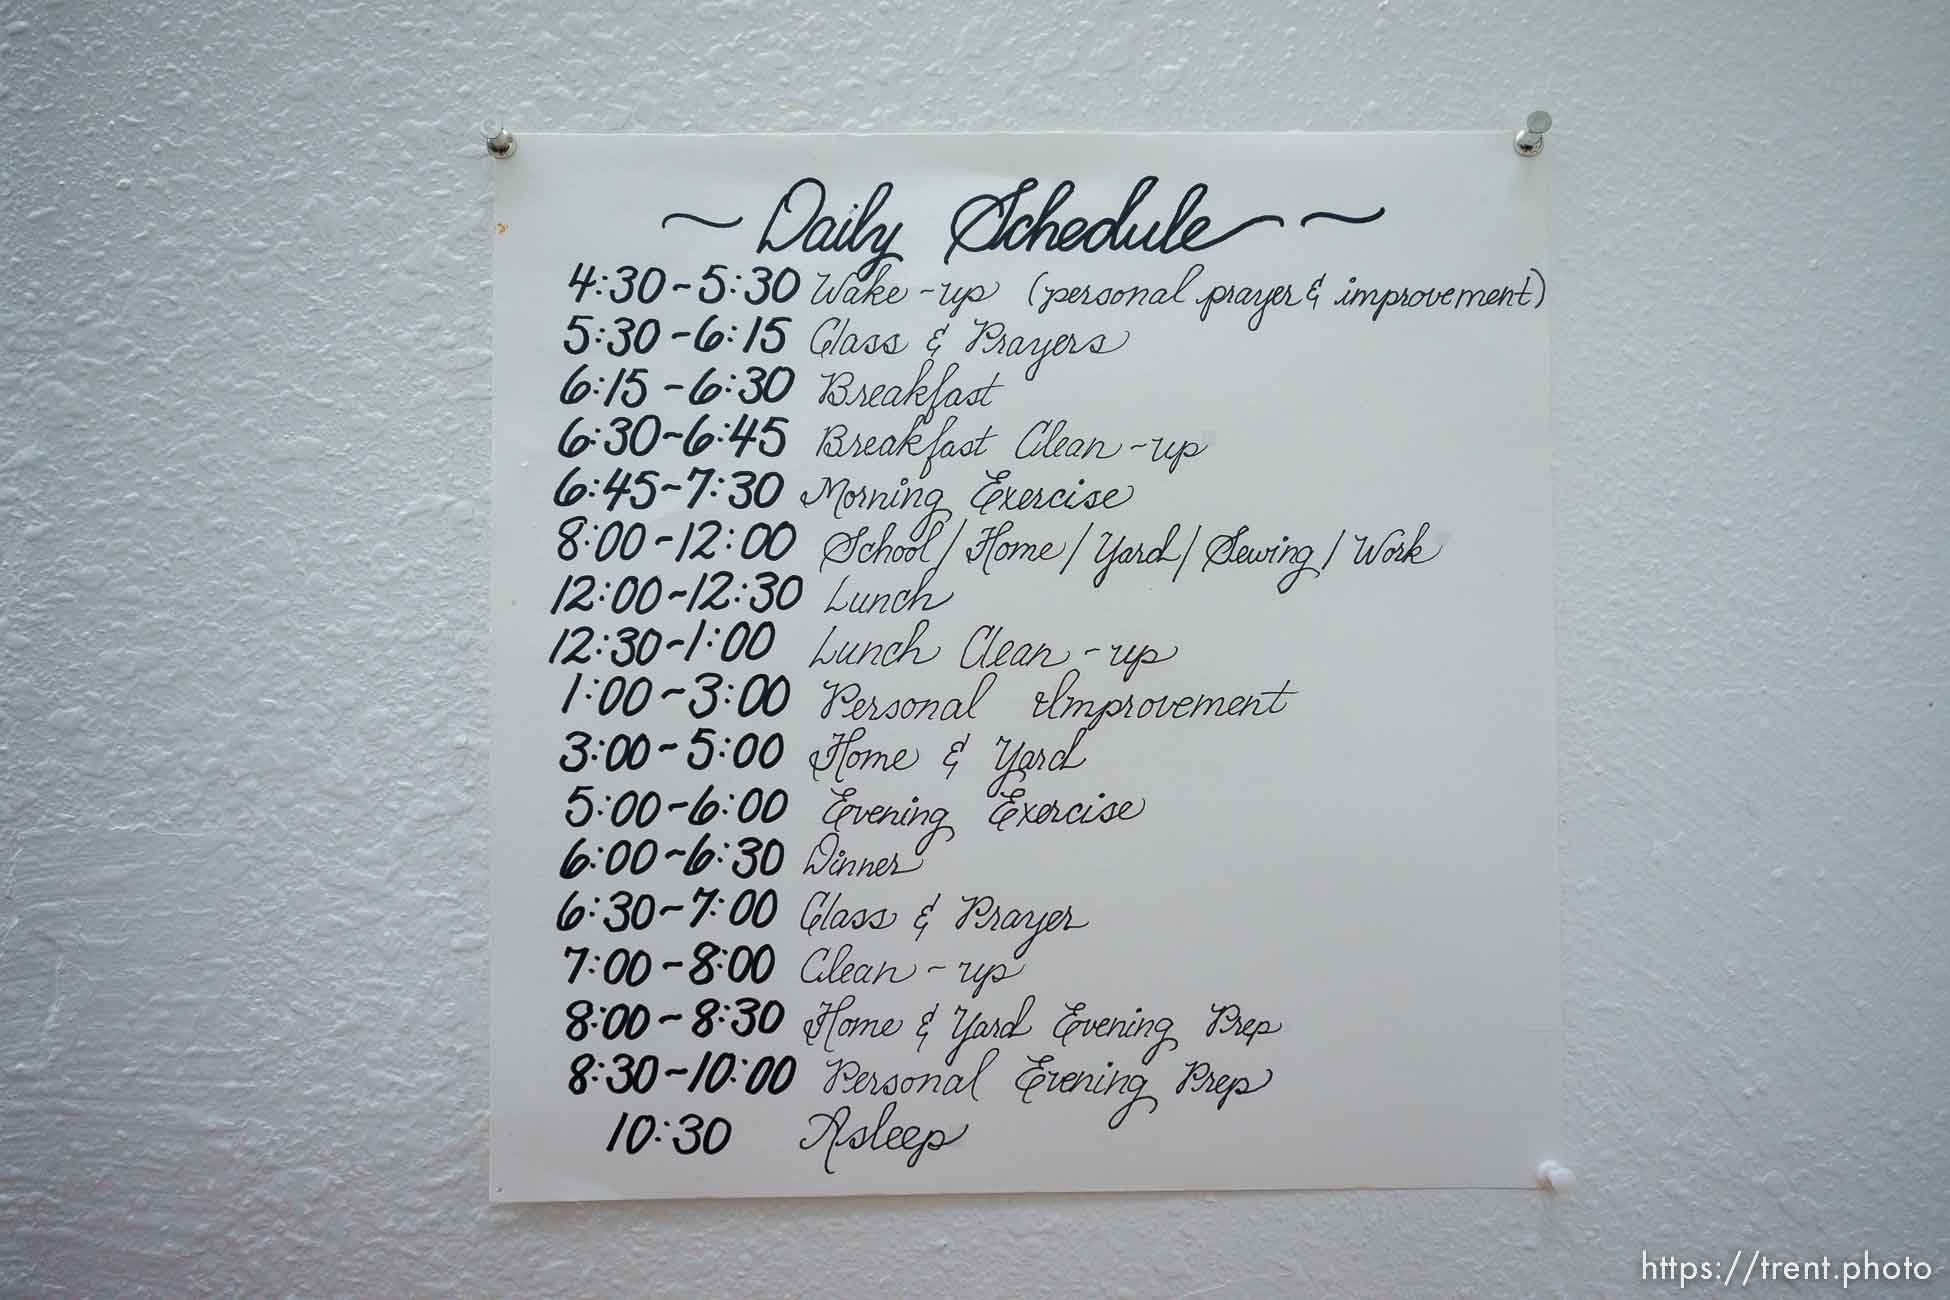 ~ Daily Schedule ~
4:30-5:30 Wake-up (personal prayer & improvement)
5:30-6:15 Class & Prayers
6:15-6:30 Breakfast
6:30-6:45 Breakfast Clean-up
6:45-7:30 Morning Exercise
8:00-12:00 School/Home/Yard/Sewing/Work
12:00-12:30 Lunch
12:30-1:00 Lunch Clean-up
1:00-3:00 Personal Improvement
3:00-5:00 Home & Yard
5:00-6:00 Evening Exercise
6:00-6:30 Dinner
6:30-7:00 Class & Prayer
7:00-8:00 Clean-up
8:00-8:30 Home & Yard Evening Prep
8:30-10:00 Personal Evening Prep
10:30 Asleep
https://trent.photo